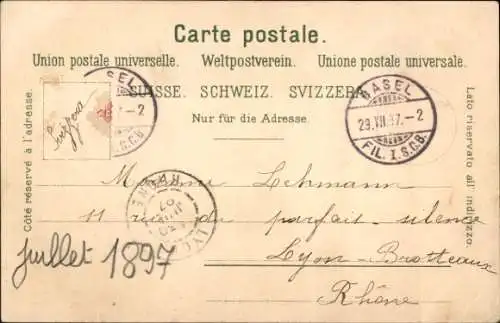 Carte postale.
Union postale universelle. Weltpostverein. Unione postale universale.
SUISSE. SCHWEIZ. SVIZZERA.
Nur für die Adresse.
Côté réservé à l'adresse.
Lato riservato all' indirizzo.
BASEL
-2
BASEL
29.VII.97.-2
FIL. I.S.C.B.
RHONE
97
Madame Lehmann
11 rue du parfait-silence
Lyon-Brotteaux
Rhône
juillet 1897